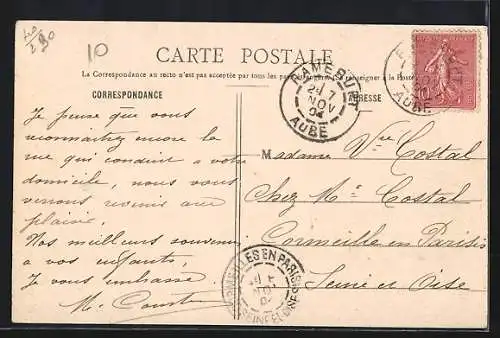 10
CARTE POSTALE
La Correspondance au recto n'est pas acceptée par tous les pays étrangers. Se renseigner à la Poste
CORRESPONDANCE
ADRESSE
RAMERUPT
7
NOV
04
AUBE
AUBE
Je pense que vous
reconnaîtrez encore la
rue qui conduit a votre
domicile, nous vous
verrons revenir avec
plaisir.
Nos meilleurs souvenirs
a vos enfants,
Je vous embrasse.
Madame Vve Costal
Chez Mr Costal
Cormeille en Parisis
Seine et Oise
CORMEILLES EN PARISIS